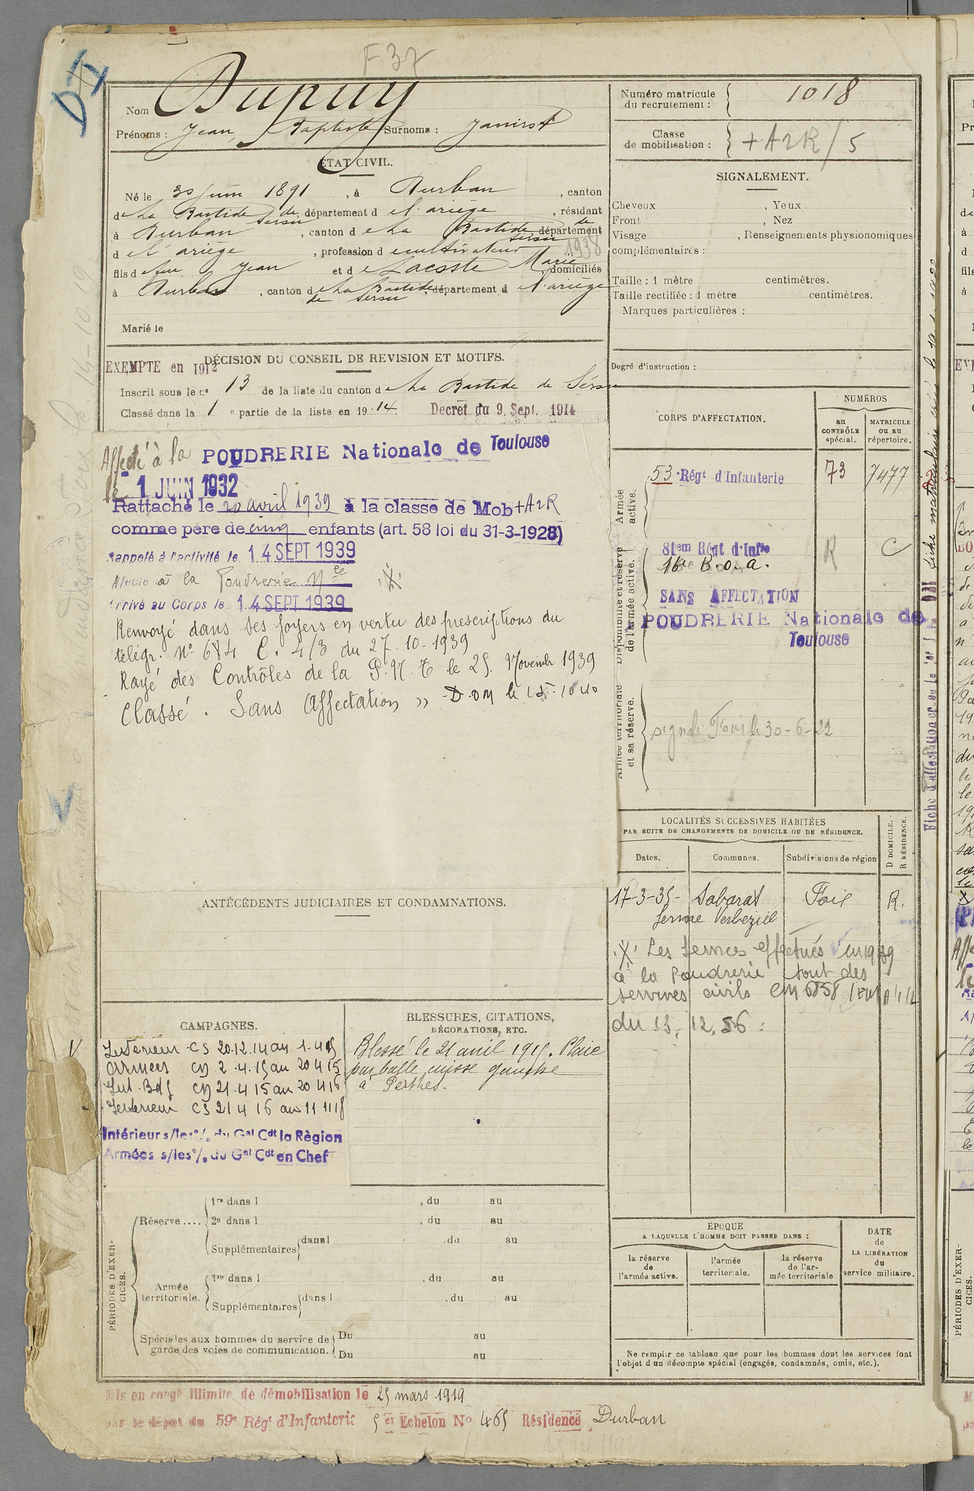 F37
Nom Dupuy
Prénoms : Jean, Baptiste Surnoms :
ÉTAT CIVIL.
Né le 30 juin 1891, à Durban, canton
de La Bastide de Sérou, département de l'ariège, résidant
à Durban, canton de La Bastide de Sérou, département
de l'ariège, profession de cultivateur
1938
fils de feu Jean et de Lacoste Marie, domiciliés
à Durban, canton de La Bastide de Serou, département de l'ariège
Marié le
DÉCISION DU CONSEIL DE REVISION ET MOTIFS.
EXEMPTE en 1912
Inscrit sous le no 13 de la liste du canton de La Bastide de Sérou
Classé dans la 1 e partie de la liste en 1914. Décret du 9. Sept. 1914
Affecté à la POUDRERIE Nationale de Toulouse
le 1 JUIN 1932
Rattaché le 20 avril 1939 à la classe de Mob +A2R
comme père de cinq enfants (art. 58 loi du 31-3-1928)
Rappelé à l'activité le 14 SEPT 1939
Affecté à la Poudrerie Nle
Arrivé au Corps le 14 SEPT 1939
Renvoyé dans ses foyers en vertu des prescriptions du
télégr. No 684 C. 4/3 du 27.10.1939
Rayé des Contrôles de la P.N.T. le 25 Novembre 1939
Classé "Sans Affectation" D.OM le 15-10-40
ANTÉCÉDENTS JUDICIAIRES ET CONDAMNATIONS.
CAMPAGNES.
Intérieur CS 20.12.14 au 1.4.15
Armées CD 2.4.15 au 20 4 15
Int. Bds CD 21.4.15 au 20 4 16
Intérieur CS 21 4 16 au 11 11 18
Intérieur s/les o/. du Gal Cdt la Région
Armées s/les o/. du Gal Cdt en Chef
BLESSURES, CITATIONS,
DÉCORATIONS, ETC.
Blessé le 21 avril 1915. Plaie
par balle cuisse gauche
à Perthes.
PÉRIODES D'EXERCICES.
Réserve....
1re dans l , du au
2e dans l , du au
Supplémentaires dans l , du au
Armée territoriale.
1re dans l , du au
Supplémentaires dans l , du au
Spéciales aux hommes du service de garde des voies de communication.
Du au
Du au
Mis en congé illimité de démobilisation le 25 mars 1919
par le dépôt du 59e Régt d'Infanterie 5 et Echelon No 465 Résidence Durban
Numéro matricule du recrutement : 1018
Classe de mobilisation : +A2R/5
SIGNALEMENT.
Cheveux , Yeux ,
Front , Nez
Visage , Renseignements physionomiques
complémentaires :
Taille : 1 mètre centimètres.
Taille rectifiée : 1 mètre centimètres.
Marques particulières :
Degré d'instruction :
CORPS D'AFFECTATION.
NUMÉROS
au CONTRÔLE spécial.
MATRICULE ou au répertoire.
Armée active.
53e Régt d'Infanterie 73 7477
Disponibilité et réserve de l'armée active.
81em Régt d'Infie R C
16e B.O.A.
SANS AFFECTATION
POUDRERIE Nationale de
Toulouse
Armée territoriale et sa réserve.
LOCALITÉS SUCCESSIVES HABITÉES
PAR SUITE DE CHANGEMENTS DE DOMICILE OU DE RÉSIDENCE.
Dates. Communes. Subdivisions de région D DOMICILE. R RÉSIDENCE.
17-3-35- Sabarat Foix R.
ferme
Les services effectués en 1939
à la Poudrerie sont des
services civils
du 13.12.56
ÉPOQUE
A LAQUELLE L'HOMME DOIT PASSER DANS :
la réserve de l'armée active.
l'armée territoriale.
la réserve de l'armée territoriale
DATE de LA LIBÉRATION du service militaire.
Ne remplir ce tableau que pour les hommes dont les services font
l'objet d'un décompte spécial (engagés, condamnés, omis, etc.).